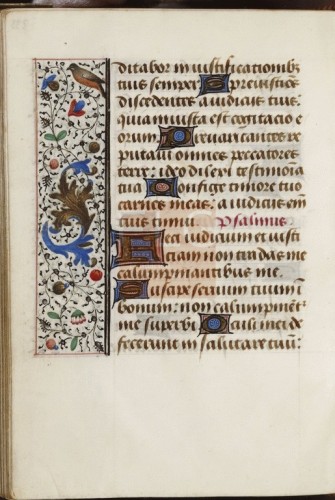 ditabor in iustificationibz
tuis semper Sprevisti oēs
discedentes a iudiciis tuis:
quia iniusta est cogitacio e
orum Prevaricantes re
putavi omnes peccatores
terre: ideo dilexi testimonia
tua Confige timore tuo
carnes meas: a iudiciis eīm
tuis timui Psalmus
Feci iudicium et iusti
ciam non tradas me
calumpniantibus me.
Suscipe servum tuum ī
bonum: non calumpniēt̄
me superbi Oculi mei de
fecerunt in salutare tuū: